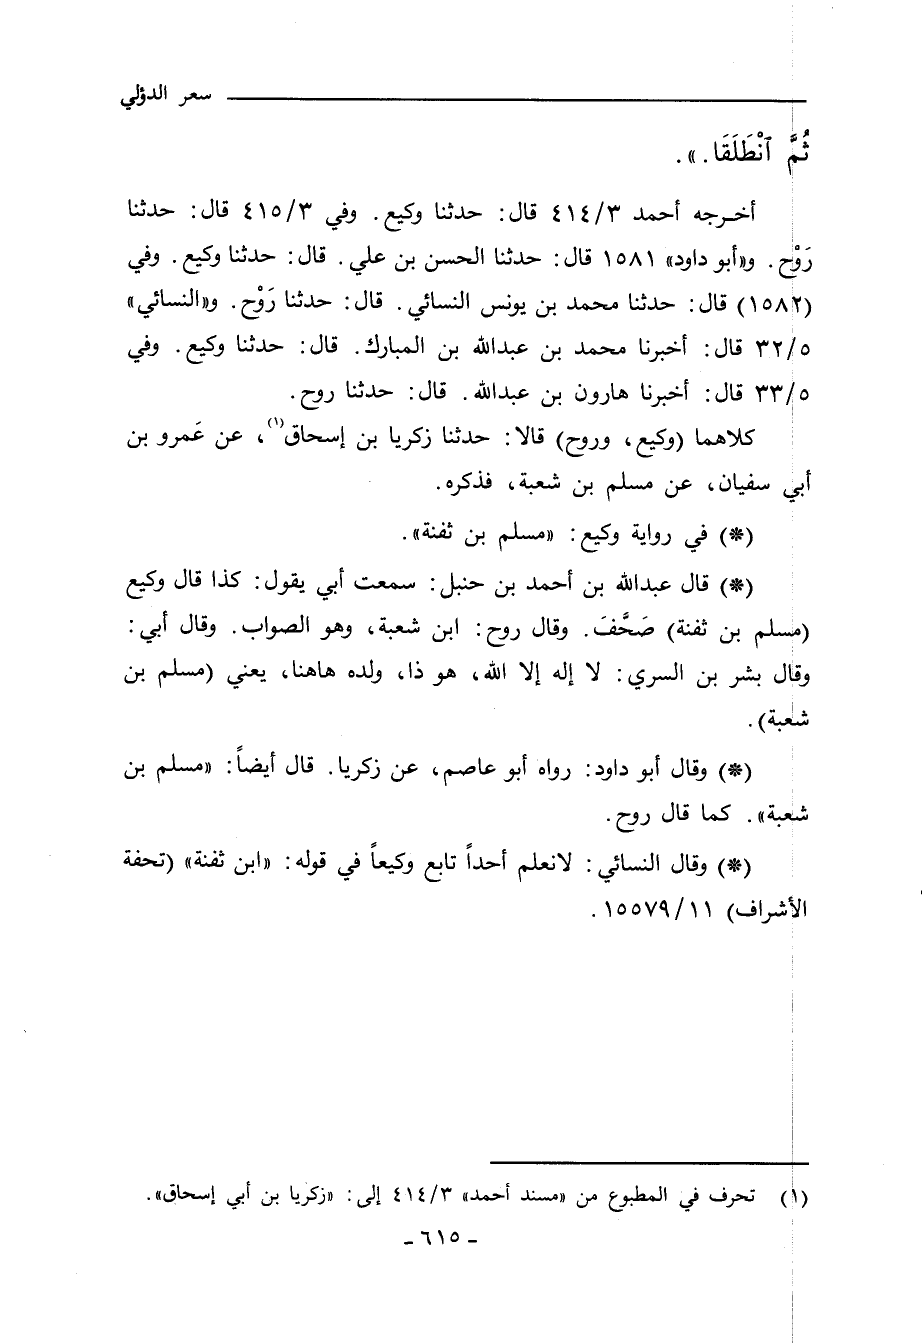 سعر الدؤلي
ثُمَّ ٱنْطَلَقَا. ».
أخـرجه أحمد ٤١٤/٣ قال: حدثنا وكيع. وفي ٤١٥/٣ قال: حدثنا
رَوْح. و«أبو داود» ١٥٨١ قال: حدثنا الحسن بن علي. قال: حدثنا وكيع. وفي
(١٥٨٢) قال: حدثنا محمد بن يونس النسائي. قال: حدثنا رَوْح. و«النسائي»
٣٢/٥ قال: أخبرنا محمد بن عبدالله بن المبارك. قال: حدثنا وكيع. وفي
٣٣/٥ قال: أخبرنا هارون بن عبدالله. قال: حدثنا روح.
كلاهما (وكيع، وروح) قالا: حدثنا زكريا بن إسحاق(١)، عن عَمرو بن
أبي سفيان، عن مسلم بن شعبة، فذكره.
(*) في رواية وكيع: «مسلم بن ثفنة».
(*) قال عبدالله بن أحمد بن حنبل: سمعت أبي يقول: كذا قال وكيع
(مسلم بن ثفنة) صَحَّفَ. وقال روح: ابن شعبة، وهو الصواب. وقال أبي:
وقال بشر بن السري: لا إله إلا الله، هو ذا، ولده هاهنا، يعني (مسلم بن
شعبة).
(*) وقال أبو داود: رواه أبو عاصم، عن زكريا. قال أيضاً: «مسلم بن
شعبة». كما قال روح.
(*) وقال النسائي: لانعلم أحداً تابع وكيعاً في قوله: «ابن ثفنة» (تحفة
الأشراف) ١٥٥٧٩/١١.
(١) تحرف في المطبوع من «مسند أحمد» ٤١٤/٣ إلى: «زكريا بن أبي إسحاق».
- ٦١٥ -